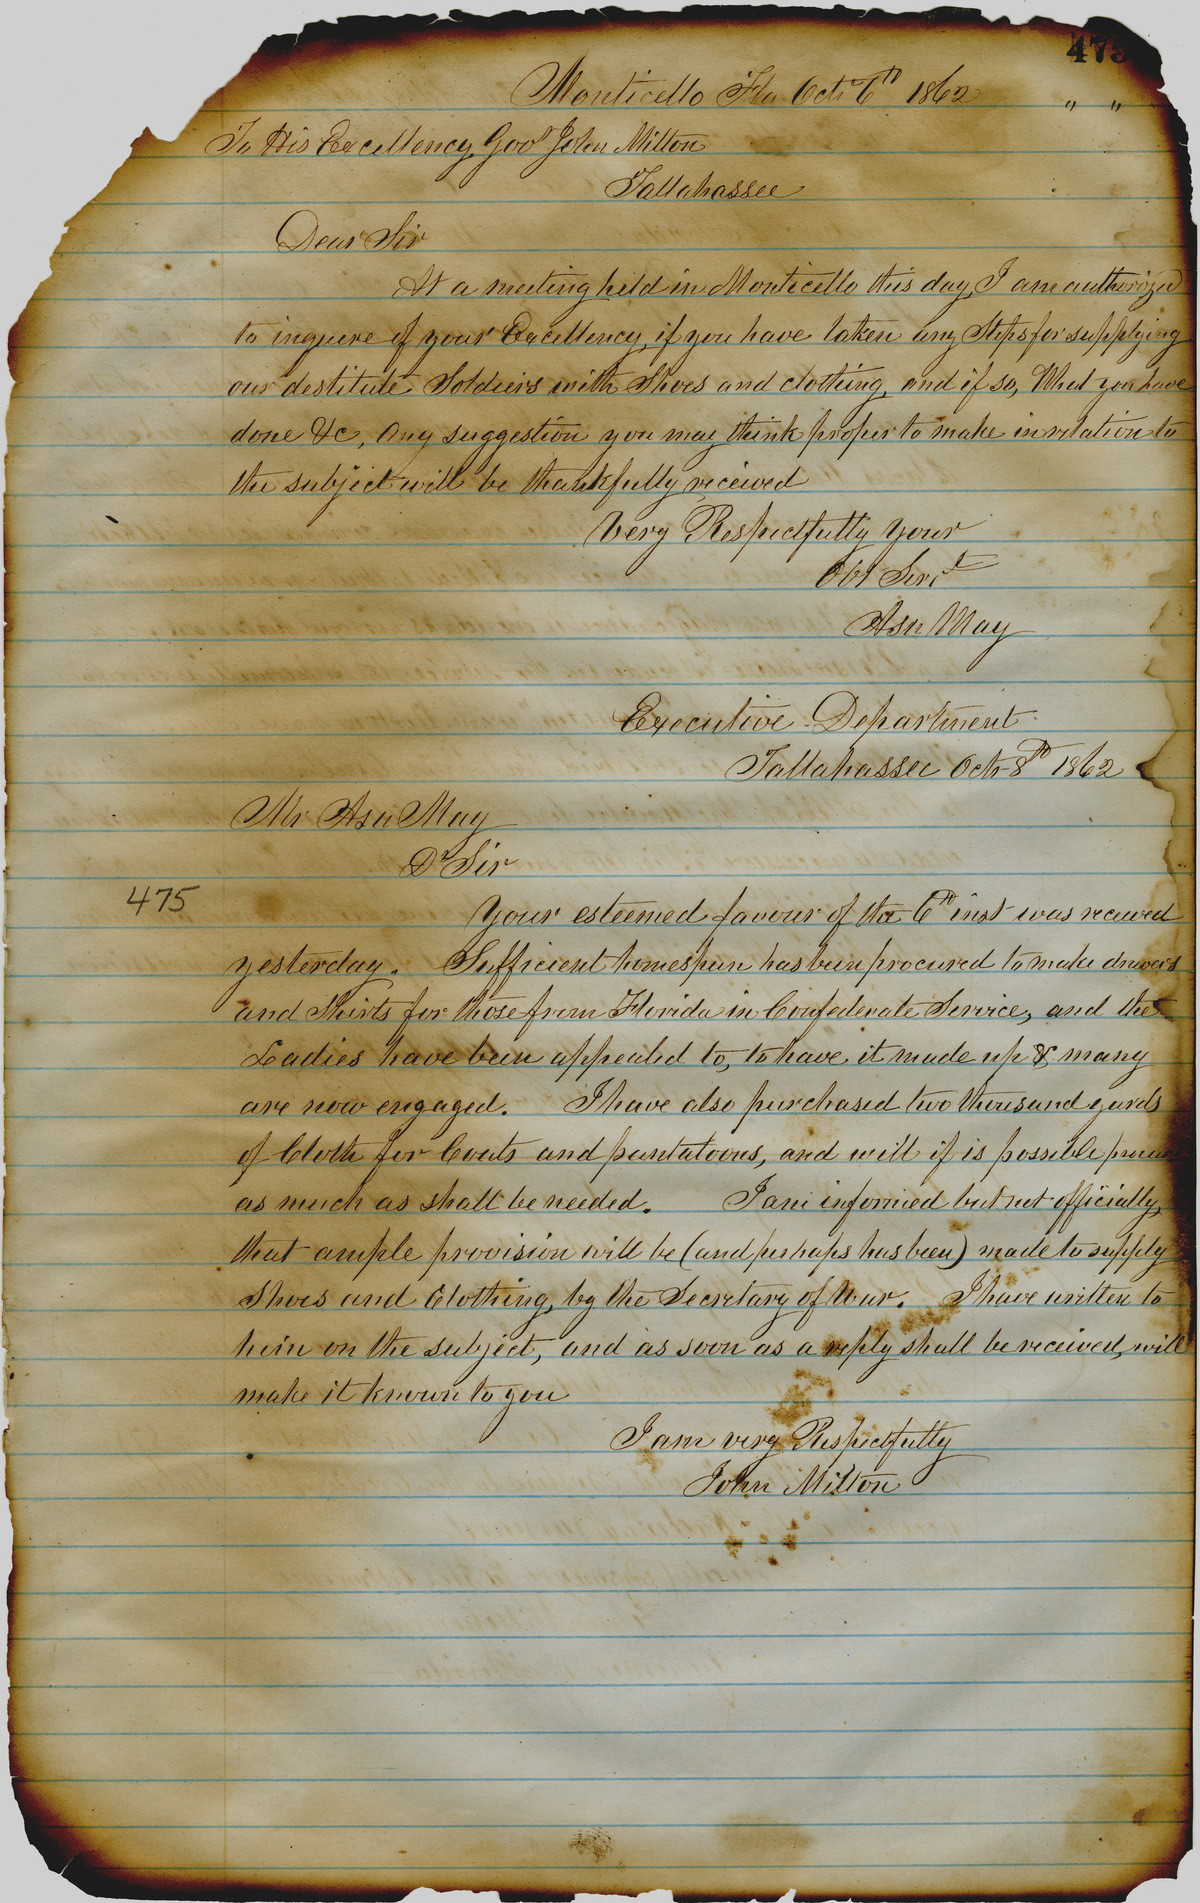 475
Monticello Fla Octr 6th 1862
" "
To His Excellency Govr John Milton
Tallahassee
Dear Sir
At a meeting held in Monticello this day, I am authorized
to inquire of your Excellency, if you have taken any Steps for supplying
our destitute Soldiers with Shoes and clothing, and if so, What you have
done &c, Any suggestion you may think proper to make in relation to
the subject will be thankfully received
Very Respectfully your
Obt Servt
Asa May
Executive Department
Tallahassee Octr 8th 1862
Mr Asa May
Dr Sir
475
Your esteemed favour of the 6th inst was received
yesterday. Sufficient homespun has been procured to make drawers
and Shirts for those from Florida in Confederate Service, and the
Ladies have been appealed to, to have it made up & many
are now engaged. I have also purchased two thousand yards
of Cloth for Coats and pantaloons, and will if is possible procure
as much as shall be needed. I am informed but not officially,
that ample provision will be (and perhaps has been) made to supply
Shoes and Clothing, by the Secretary of War. I have written to
him on the subject, and as soon as a reply shall be received, will
make it known to you
I am very Respectfully
John Milton